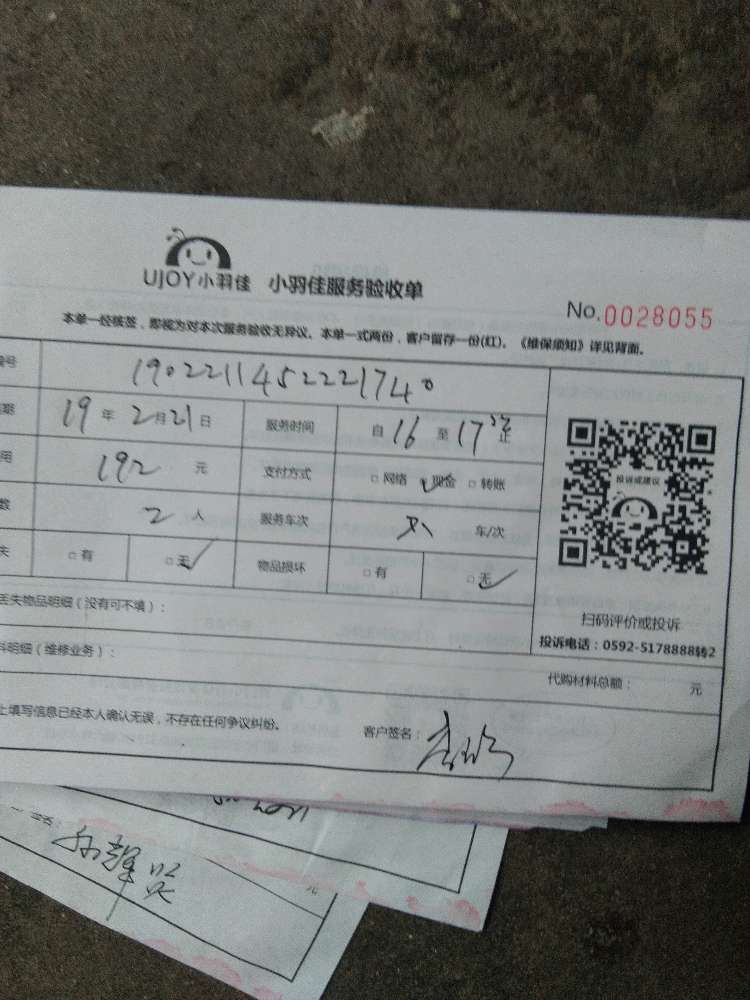 UJOY小羽佳 小羽佳服务验收单
No.0028055
本单一经核签，即视为对本次服务验收无异议。本单一式两份，客户留存一份(红)。《维保须知》详见背面。
号 1902211452221740
期 19年2月21日 服务时间 自16至17 止
用 192元 支付方式 □网络 现金 □转账
数 2人 服务车次 车/次
失 □有 □无 物品损坏 □有 □无
投诉或建议
扫码评价或投诉
投诉电话：0592-5178888转2
丢失物品明细（没有可不填）：
料明细（维修业务）：
代购材料总额： 元
上填写信息已经本人确认无误，不存在任何争议纠纷。 客户签名：
元